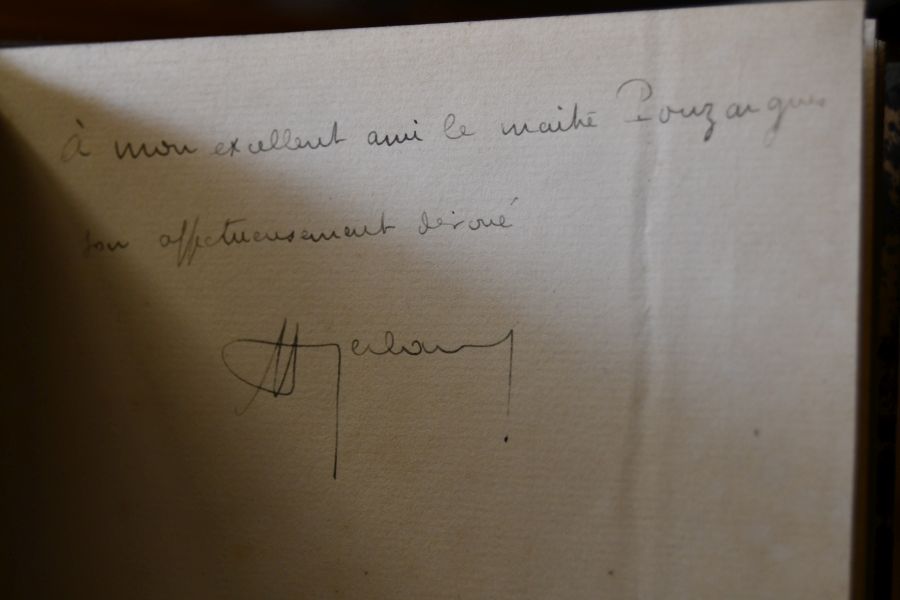 À mon excellent ami le maître Pouzargues
son affectueusement dévoué